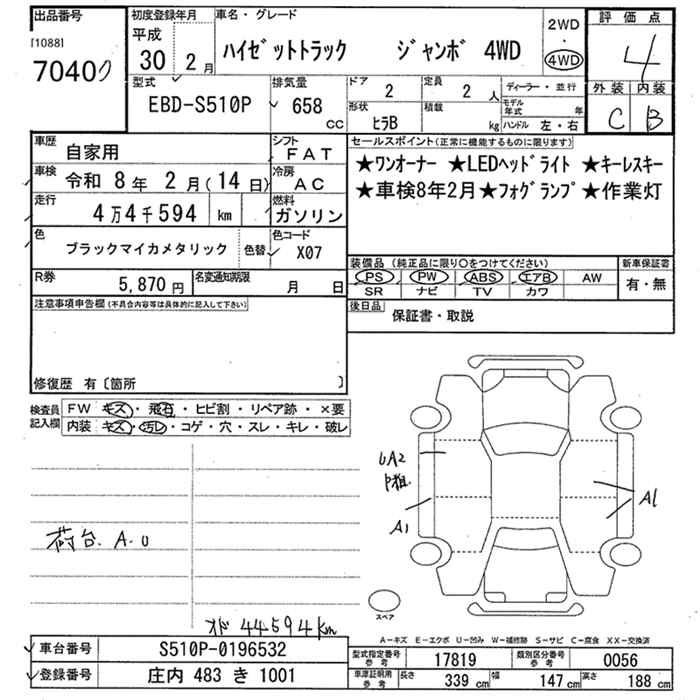 出品番号 初度登録年月 車名・グレード 評価点
[1088] 平成 2WD
7040 30年 2月 ハイゼットトラック ジャンボ 4WD ・ 4WD 4
型式 排気量 ドア 定員 ディーラー・並行 外装 内装
EBD-S510P 658 cc 2 2人 モデル年式 年 C B
形状 積載
ヒラB kg ハンドル 左・右
車歴 自家用 シフト FAT セールスポイント(正常に機能するものに限ります)
車検 令和 8年 2月(14日) 冷房 AC ★ワンオーナー ★LEDヘッドライト ★キーレスキー
走行 4万4千594 km 燃料 ガソリン ★車検8年2月★フォグランプ ★作業灯
色 ブラックマイカメタリック 色替 色コード X07
装備品(純正品に限り○をつけてください) 新車保証書
R券 5,870円 名変通知期限 月 日 PS PW ABS エアB AW 有・無
SR ナビ TV カワ
注意事項申告欄(不具合内容等は具体的に記入して下さい) 後日品 保証書・取説
修復歴 有〔箇所 〕
検査員記入欄 FW キズ・飛石・ヒビ割・リペア跡・×要
内装 キズ・汚レ・コゲ・穴・スレ・キレ・破レ
UA2
A1 A1
荷台 A.U
スペア
オド 44594km
A-キズ E-エクボ U-凹み W-補修跡 S-サビ C-腐食 XX-交換済
車台番号 S510P-0196532 型式指定番号 参考 17819 類別区分番号 参考 0056
登録番号 庄内 483 き 1001 車庫証明用 参考 長さ 339 cm 幅 147 cm 高さ 188 cm